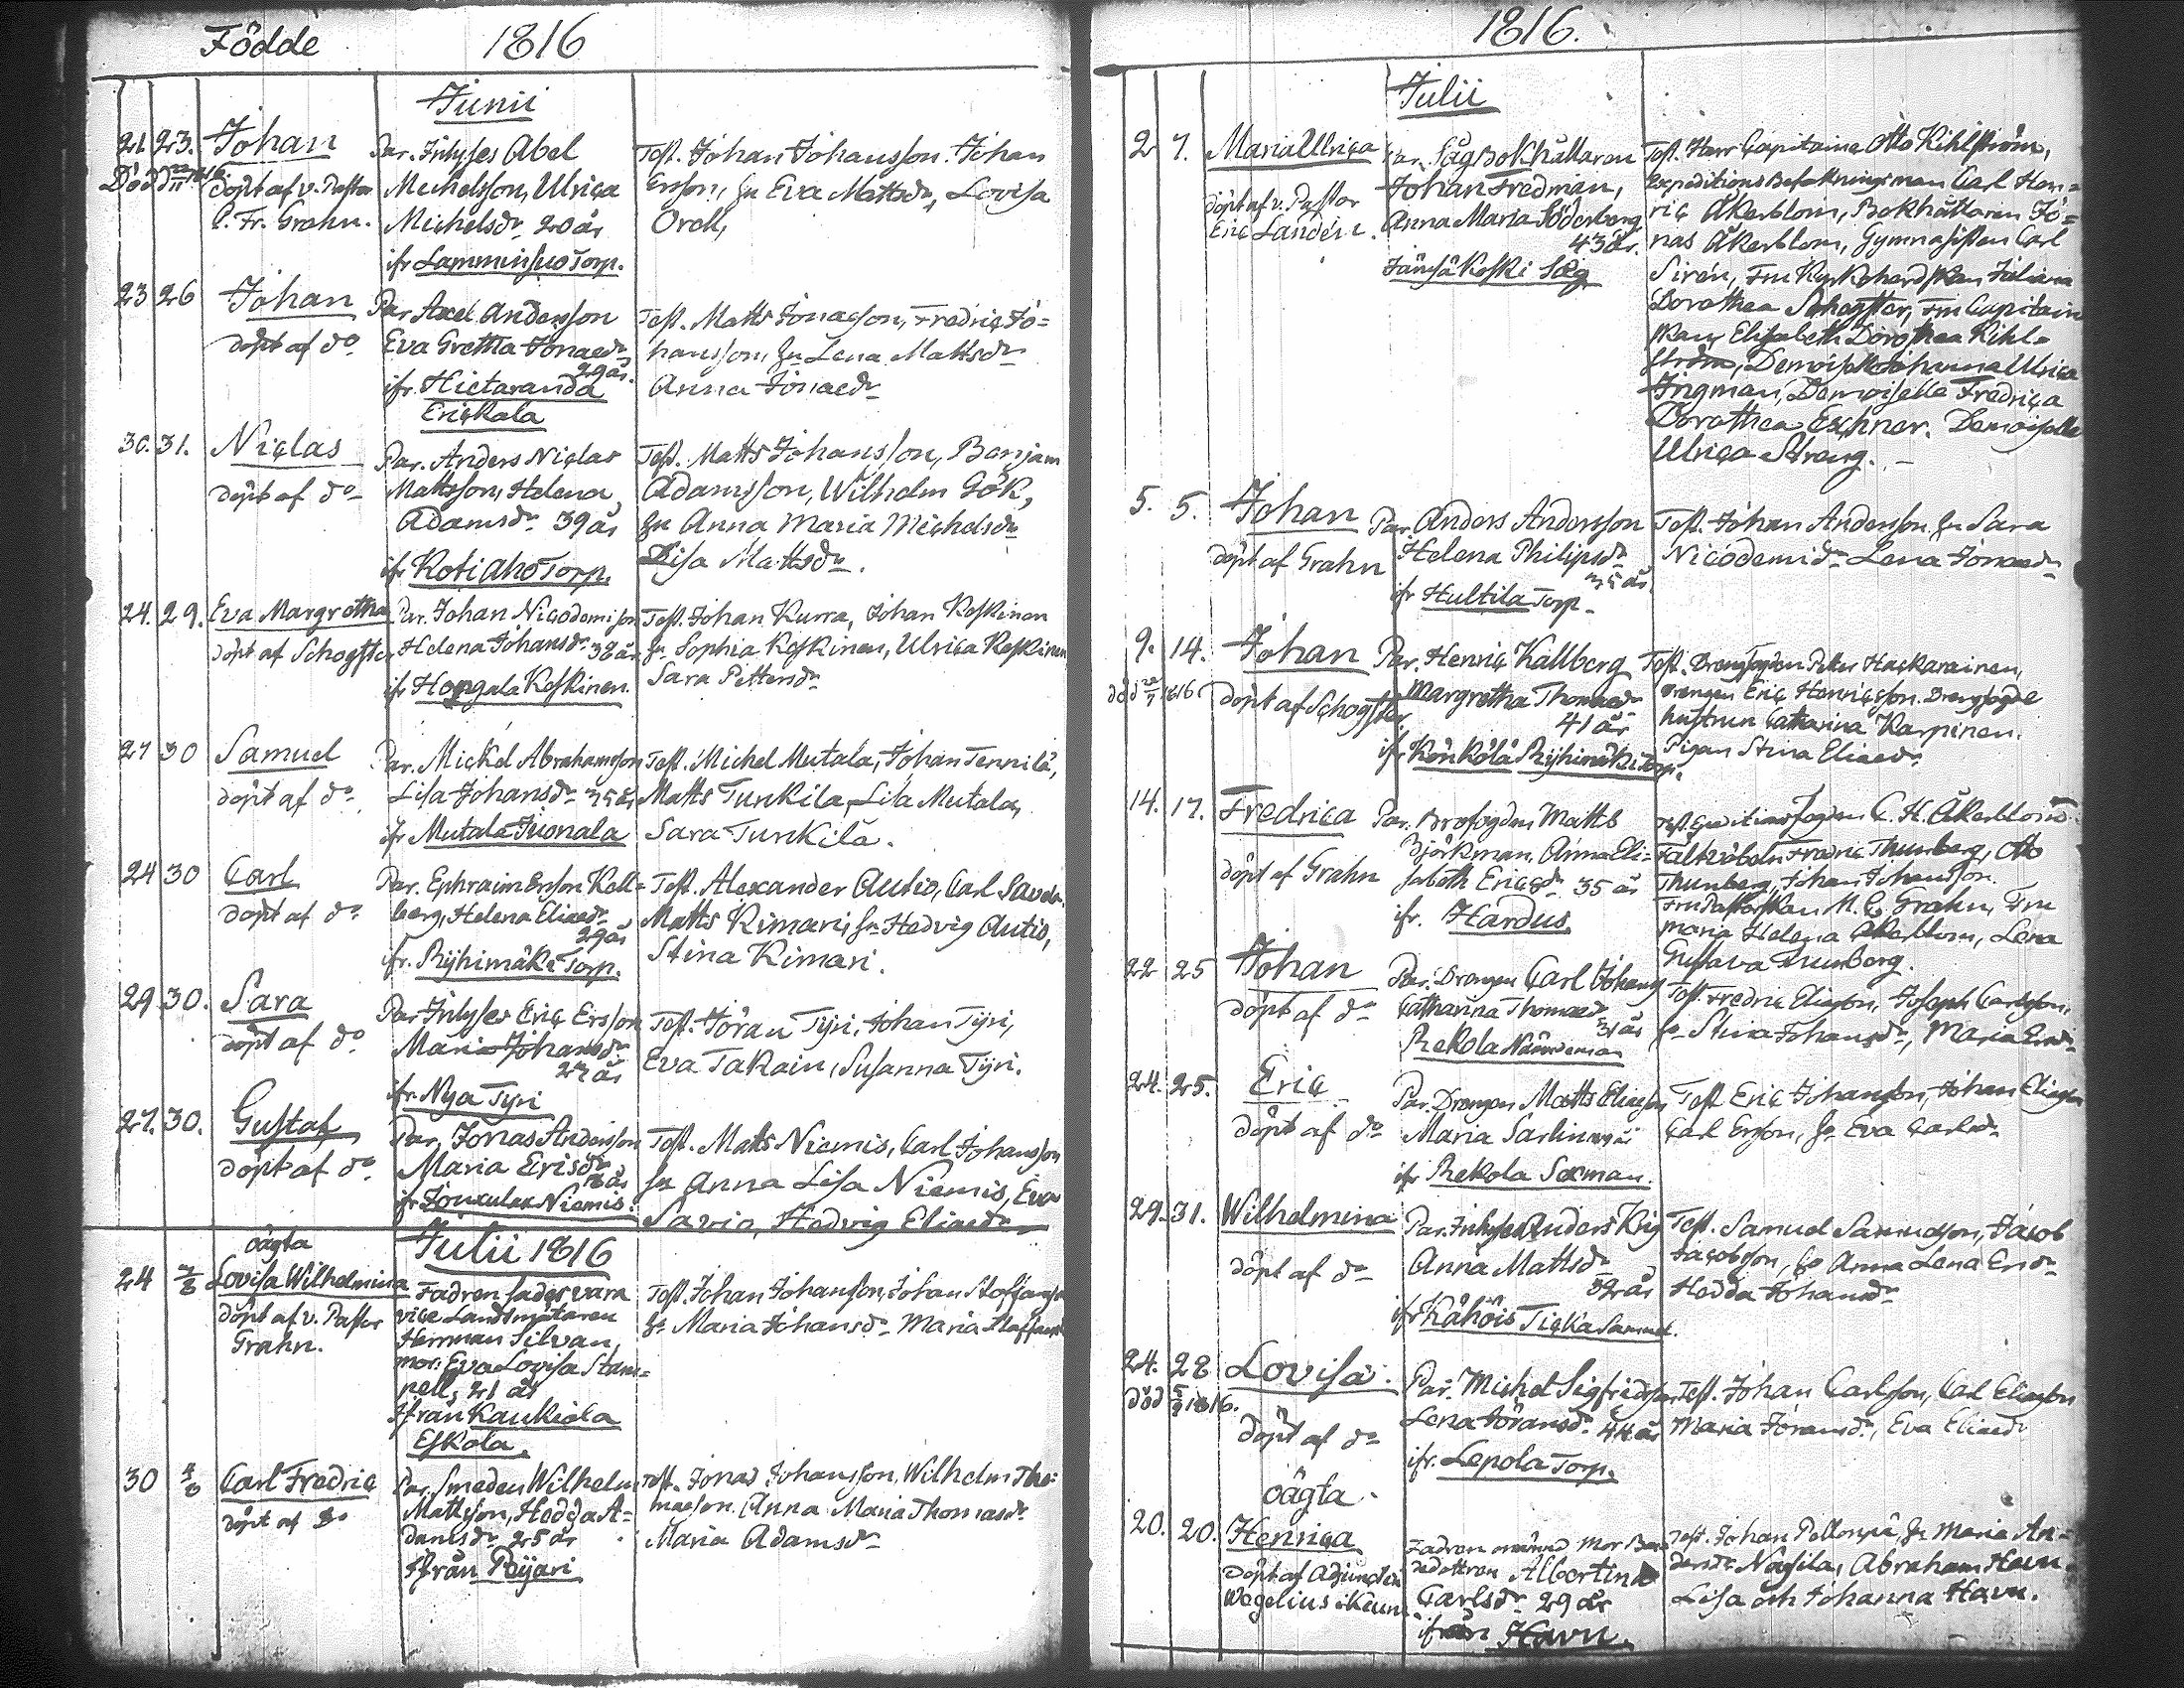 Födde 1816
Junii
21 23. Johan
Död 22/11 1816
döpt af v. Pastor
C. Fr. Grahn.
Par. Inhyses Abel
Michelsson, Ulrica
Michelsdr 20 år
ifr Lamminsuo Torp.
Test. Johan Johansson. Johan
Ersson, hu Eva Mattsdr, Lovisa
Orell,
23 26 Johan
döpt af do
Par Axel Andersson
Eva Gretha Jonaedr
29 år.
ifr. Hietaranda
Erickala
Test. Matts Jonasson, Fredric Jo=
hansson, hu Lena Mattsdr
Anna Jonaedr
30. 31. Niclas
döpt af do
Par. Anders Niclas
Mattsson, Helena
Adamsdr 39 år
ifr Koti aho Torp.
Test. Matts Johansson, Benjam
Adamsson, Wilhelm Gök,
hu Anna Maria Michelsdr
Lisa Mattsdr.
24. 29. Eva Margretha
döpt af Schogster
Par. Johan Nicodemisson
Helena Johansdr 38 år
ifr Hongala Keskinen.
Test. Johan Kurra, Johan Keskinen
hu Sophia Keskinen, Ulrica Keskinen
Sara Pettersdr
27 30 Samuel
döpt af do
Par. Mickel Abrahamsson
Lisa Johansdr 35 år
ifr Mutala Juonala
Test. Michel Mutala, Johan Tennilä,
Matts Tunkila, Lisa Mutala,
Sara Tunkilä.
24 30 Carl
döpt af do
Par. Ephraim Ersson Kell=
berg, Helena Eliaedr
29 år
ifr. Ryhimäki Torp.
Test. Alexander Autio, Carl Savola.
Matts Kimari, hu Hedvig Autio,
Stina Kimari.
29 30. Sara
döpt af do
Par Inhyses Eric Ersson
Maria Johansdr
27 år
ifr. Nya Tyri
Test. Jöran Tyri, Johan Tyri,
Eva Takain, Susanna Tyri.
27. 30. Gustaf
döpt af do
Par. Jonas Andersson
Maria Erisdr
ifr Jonxulan Niemis.
Test. Matts Niemis, Carl Johansson
hu Anna Lisa Niemis, Eva
Savio, Hedvig Eliaedr
Julii 1816
oägta
24 2/8 Lovisa Wilhelmina
döpt af v. Pastor
Grahn.
Fadren sades vara
vice Landtmätaren
Herrman Silvan,
mor. Eva Lovisa Stam=
pell, 21 år
ifrån Kaukiala
Eskola.
Test. Johan Johansson, Johan Staffansson
hu Maria Johansdr Maria Staffansdr
30 4/8 Carl Fredric
döpt af do
Par. Smeden Wilhelm
Mattsson, Hedda A=
damsdr 25 år
ifrån Peijari
Test. Jonas Johansson, Wilhelm Tho=
masson. Anna Maria Thomasdr
Maria Adamsdr
1816.
Julii
2 7. Maria Ulrica
döpt af v. Pastor
Eric Landén.
Par. Sågbokhållaren
Johan Fredman,
Anna Maria Söderberg
43 år.
Jämsäkoski Såg
Test. Herr Capitaine Otto Kihlström,
Expeditions Befalningsman Carl Hen=
ric Åkerblom, Bokhållaren Jo=
nas Åkerblom, Gymnasisten Carl
Sirén, Fru Kyrkoherdskan Juliana
Dorothea Schogster, Fru Capitain
skan Elisabeth Dorothea Kihl=
ström, Demoiselle Johanna Ulrica
Ingman, Demoiselle Fredrica
Dorothea Eschner. Demoiselle
Ulrica Streng.
5. 5. Johan
döpt af Grahn
Par. Anders Andersson
Helena Philipsdr
35 år.
ifr Hultila Torp.
Test. Johan Andersson, hu Sara
Nicodemidr Lena Jonaedr
9. 14. Johan
död 1816
döpt af Schogster.
Par. Henric Kallberg
Margretha Thomaedr
41 år
ifr Könkölä Ryhimäki Torp.
Test. Drengfogden Petter Haskarainen,
Drengen Eric Henricsson. Drengfogde
hustrun Catharina Karpinen.
Pigan Stina Eliaedr
14. 17. Fredrica
döpt af Grahn
Par. Brofogden Matts
Björkman, Anna Eli=
sabeth Ericsdr 35 år
ifr. Hardus.
C. H. Åkerblom
Fältväbeln Fredric Thunberg, Otto
Thunberg, Johan Johansson.
Fru Pastorskan M. C. Grahn, Fru
Maria Helena Åkerblom, Lena
Gustava Thunberg.
22 25 Johan
döpt af do
Par. Drengen Carl Johans
Catharina Thomaedr
31 år
Rekola Nämdeman
Test. Fredric Eliasson, Joseph Carlsson,
hu Stina Johansdr, Maria Ersdr
24. 25. Eric
döpt af do
Par. Drengen Matts Eliasson
Maria Sarlin
ifr Rekola Sexman.
Test. Eric Johansson, Johan Eliasson
Carl Ersson, hu Eva Carlsdr
29. 31. Wilhelmina
döpt af do
Par. Inhyses Anders Krig
Anna Mattsdr
32 år
ifr Kåhöis Ticka Samuel.
Test. Samuel Samuelsson, Jacob
Jacobsson, hu Anna Lena Ersdr
Hedda Johansdr
24. 28 Lovisa.
död 5/8 1816.
döpt af do
Par. Michel Sigfridsson
Lena Jöransdr 44 år
ifr. Lepola Torp.
Test. Johan Carlsson, Carl Eliasson
Maria Jöransdr, Eva Eliaedr
oägta.
20. 20. Henrica
döpt af Adjuncten
Wegelius i Keuru
Fadren onämnd Mor Bon
dedottren Albertina
Carlsdr 29 år
ifrån Havu.
Test. Johan Pollonpä, hu Maria An=
dersdr Nasila, Abraham Havu.
Lisa och Johanna Havu.